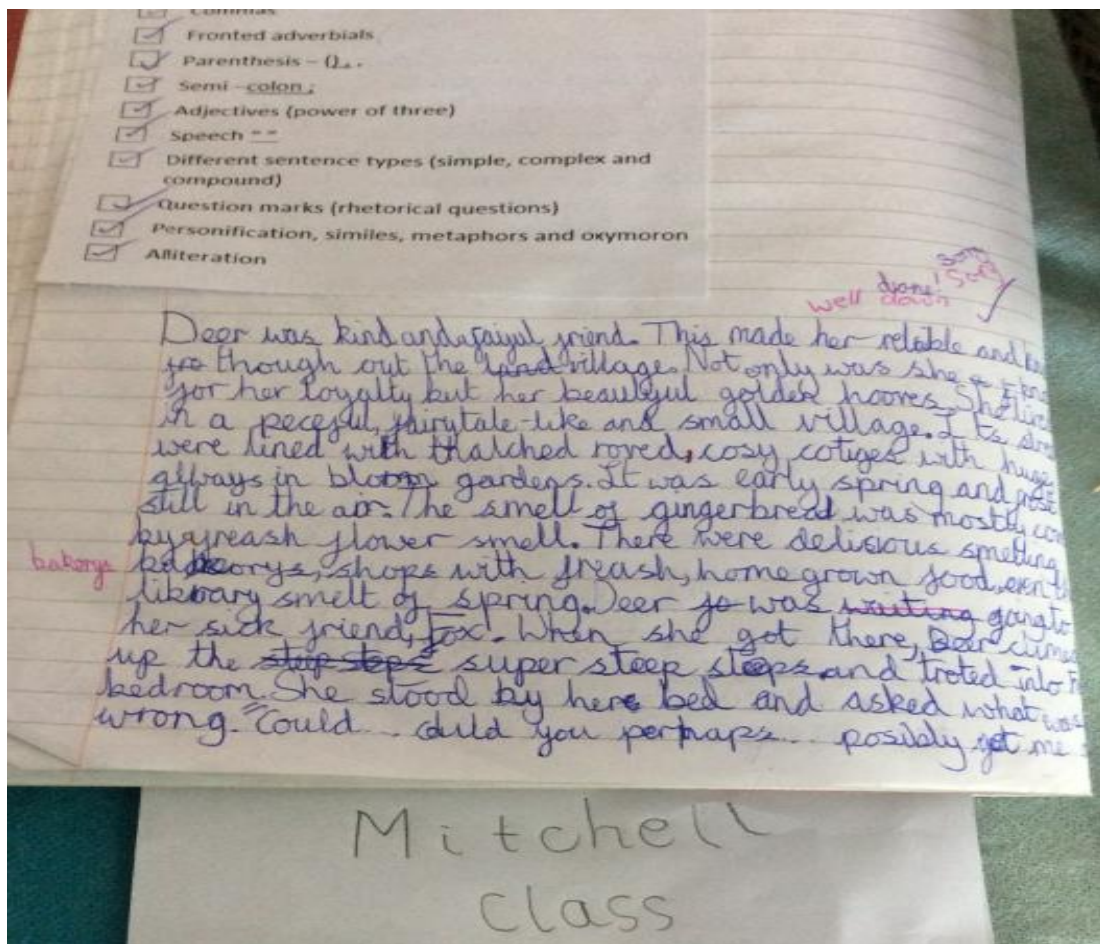 Commas
Fronted adverbials
Parenthesis – (), .
Semi –colon ;
Adjectives (power of three)
Speech " "
Different sentence types (simple, complex and
compound)
Question marks (rhetorical questions)
Personification, similes, metaphors and oxymoron
Alliteration
sorry
done! sorry
well down
Deer was kind and a faiyul friend. This made her relable and
though out the land village. Not only was she
for her loyalty but her beautyful golden hooves. She live
in a peceful, fairytale-like and small village. Its
were lined with thatched roved, cosy cotiges with huge
always in bloom gardens. It was early spring and
still in the air. The smell of gingerbread was mostly
by a freash flower smell. There were delisious smelling
bakorys
beorys, shops with freash, homegrown food, even
library smelt of spring. Deer was waiting going to
her sick friend, Fox. When she got there, Deer
up the steep steps super steep steps and troted into
bedroom. She stood by here bed and asked what was
wrong. "Could... could you perhaps... posibly get me
Mitchell
class